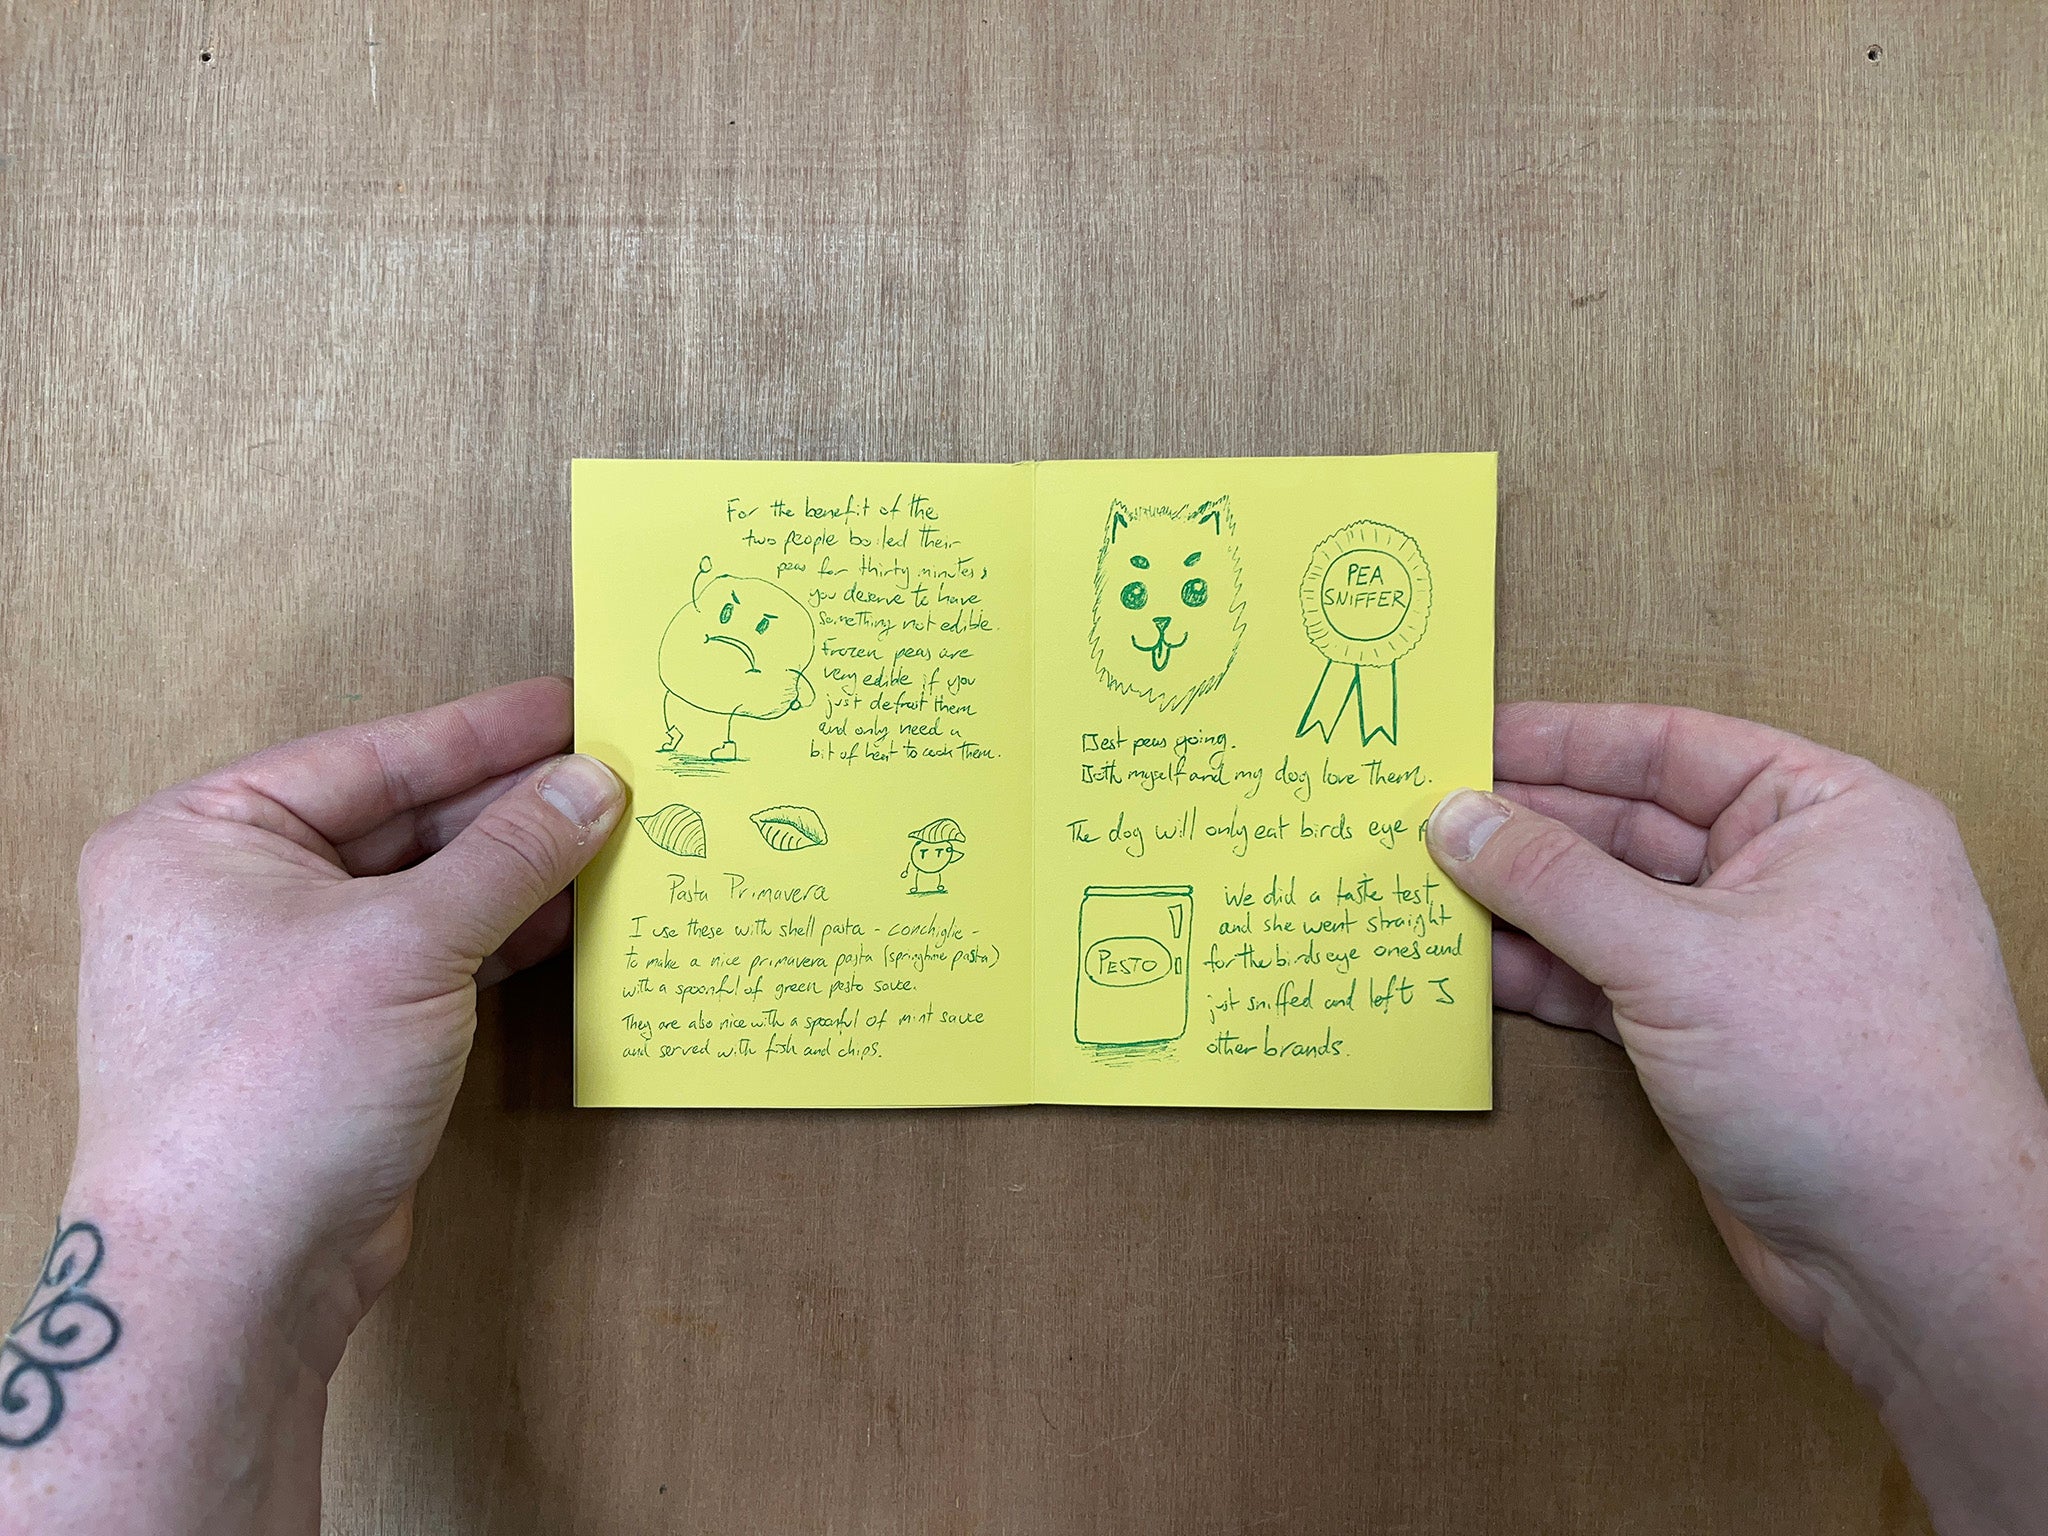 For the benefit of the
two people boiled their
peas for thirty minutes,
you deserve to have
something not edible.
Frozen peas are
very edible if you
just defrost them
and only need a
bit of heat to cook them.
Pasta Primavera
I use these with shell pasta - conchiglie -
to make a nice primavera pasta (springtime pasta)
with a spoonful of green pesto sauce.
They are also nice with a spoonful of mint sauce
and served with fish and chips.
PEA
SNIFFER
Best peas going.
Both myself and my dog love them.
The dog will only eat birds eye
PESTO
We did a taste test
and she went straight
for the birds eye ones and
just sniffed and left 5
other brands.